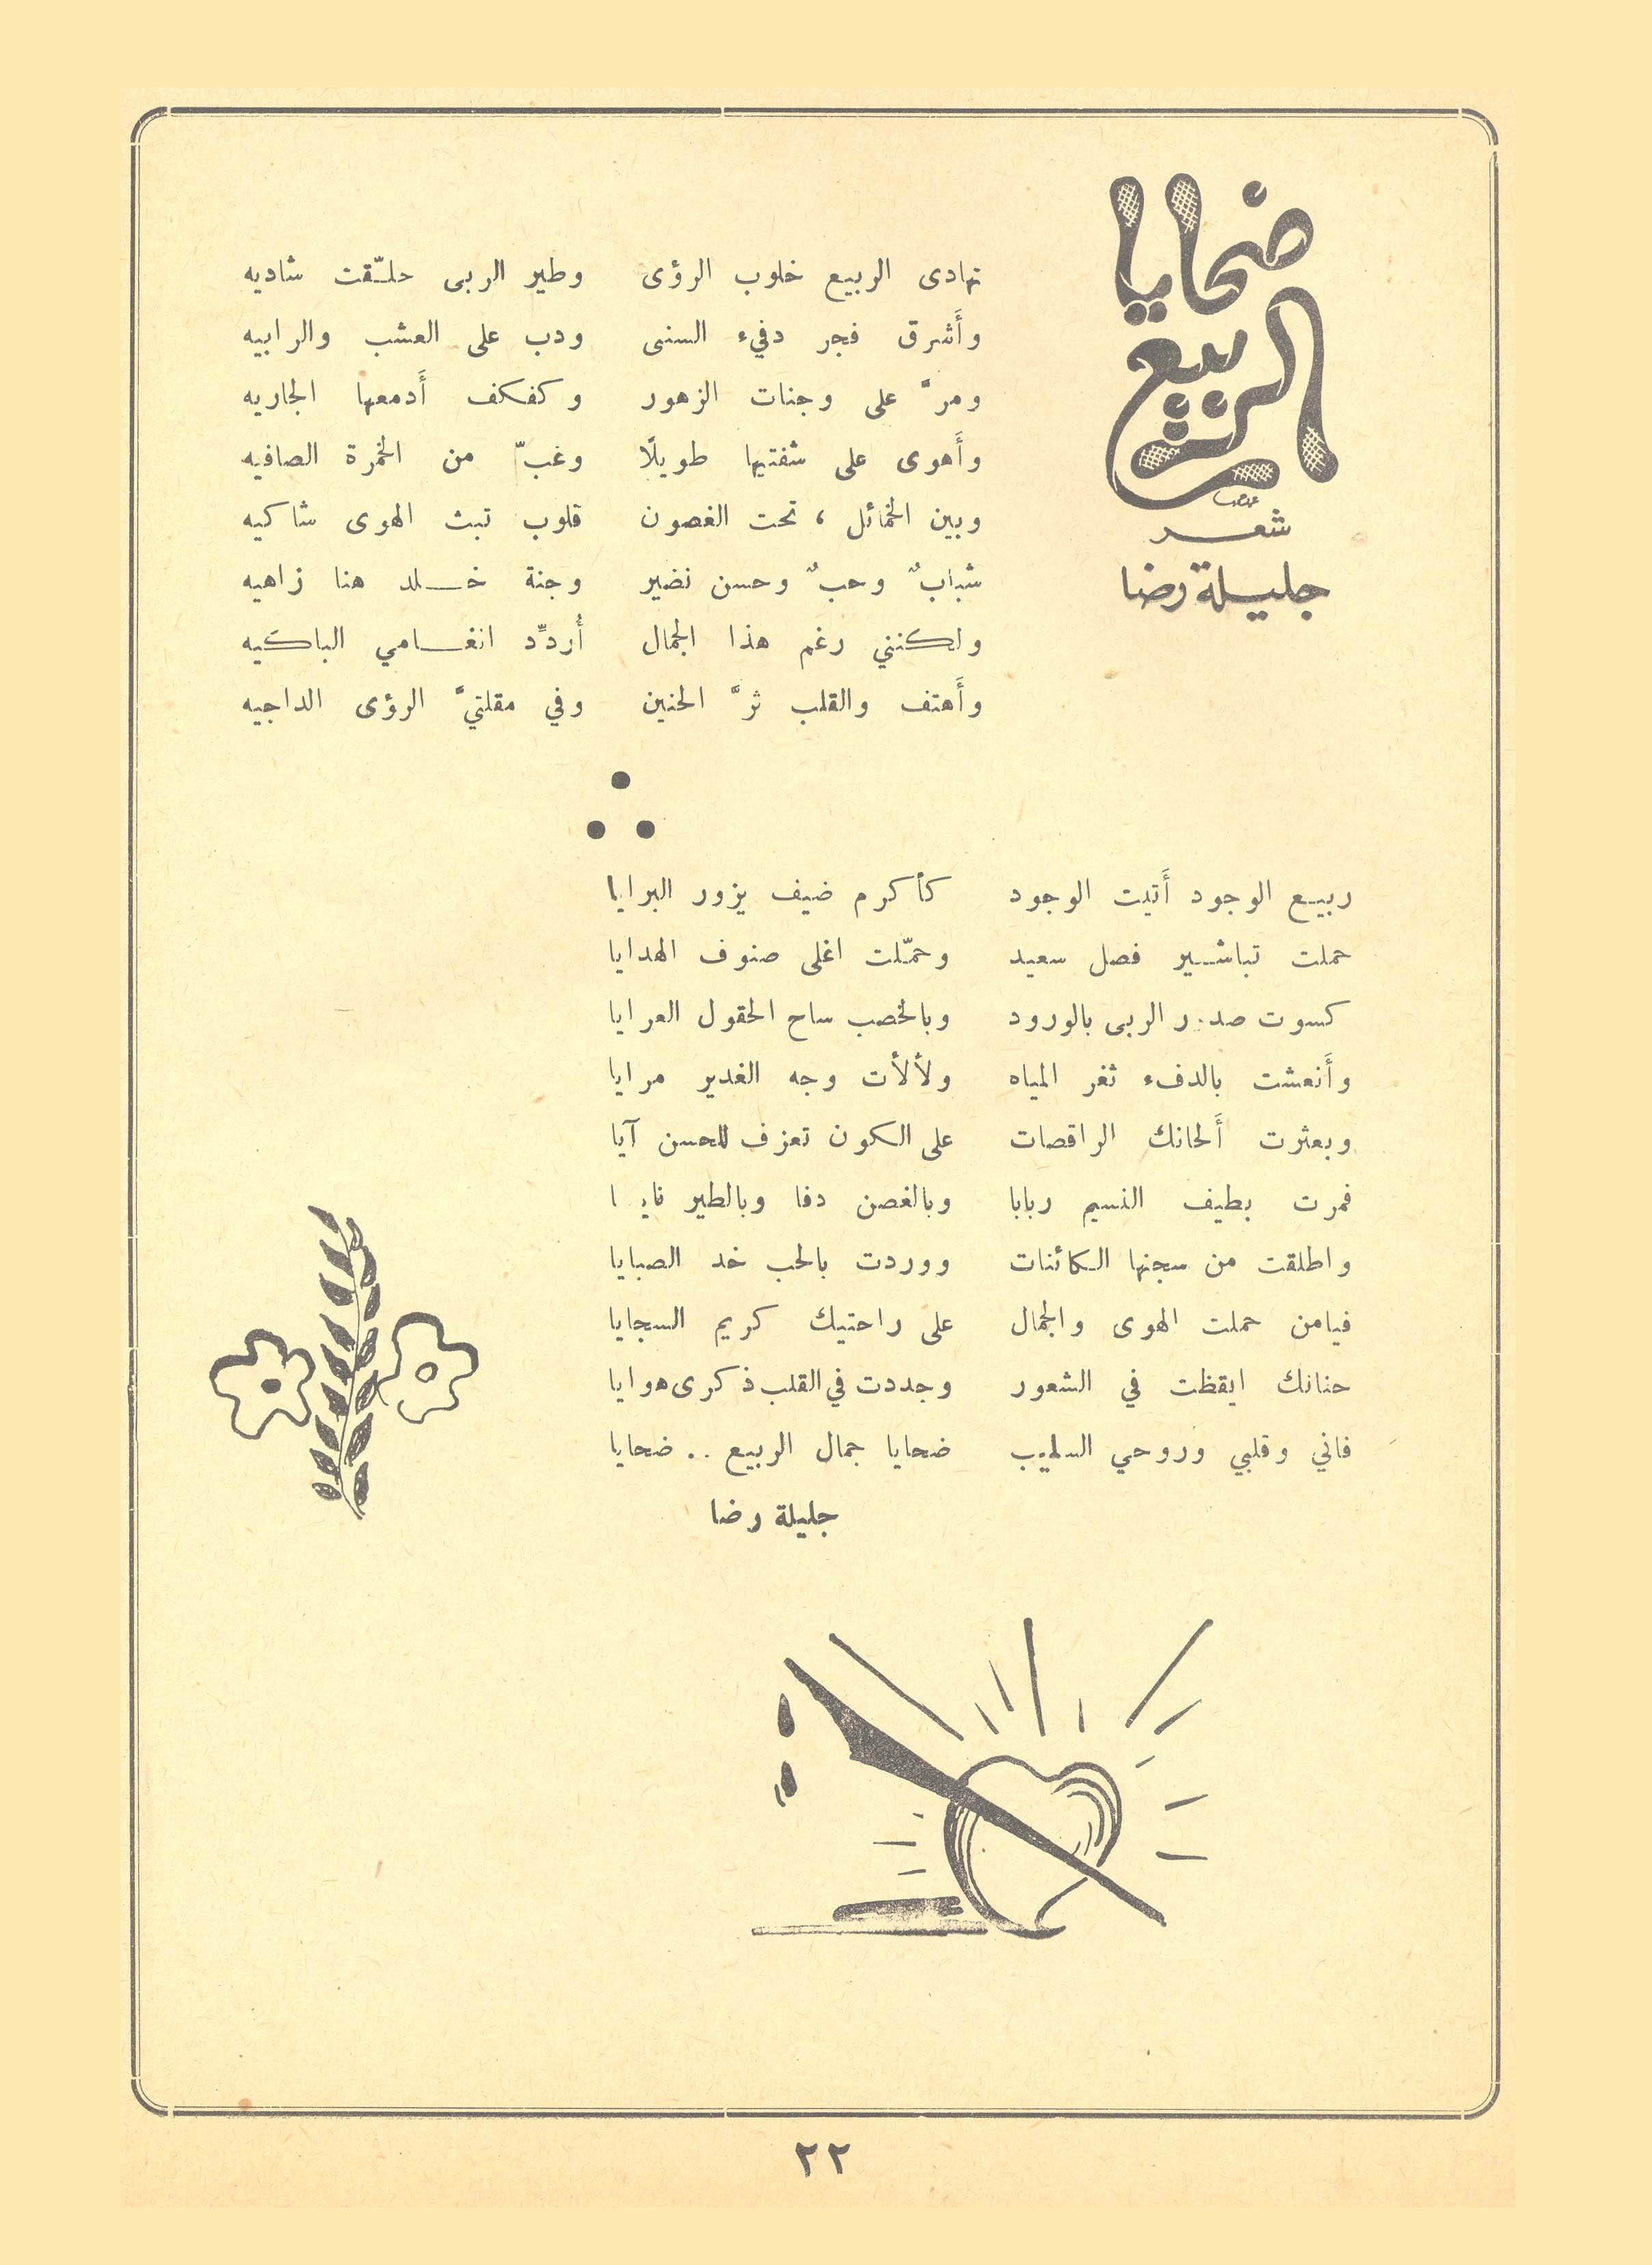 ضحايا
الربيع
شعر
جليلة رضا
تهادى الربيع خلوب الرؤى وطير الربى حلّقت شاديه
وأَشرق فجر دفيء السنى ودب على العشب والرابيه
ومرَّ على وجنات الزهور وكفكف أَدمعها الجاريه
وأَهوى على شفتيها طويلًا وغبّ من الخمرة الصافيه
وبين الخمائل ، تحت الغصون قلوب تبث الهوى شاكيه
شبابٌ وحبٌ وحسن نضير وجنة خلد هنا زاهيه
ولكنني رغم هذا الجمال أُردِّد انغامي الباكيه
وأَهتف والقلب ثرَّ الحنين وفي مقلتيَّ الرؤى الداجيه
ربيع الوجود أَتيت الوجود كأكرم ضيف يزور البرايا
حملت تباشير فصل سعيد وحمّلت اغلى صنوف الهدايا
كسوت صدور الربى بالورود وبالخصب ساح الحقول العرايا
وأَنعشت بالدفء ثغر المياه ولألأت وجه الغدير مرايا
وبعثرت أَلحانك الراقصات على الكون تعزف للحسن آيا
فمرت بطيف النسيم ربابا وبالغصن دفا وبالطير نايا
واطلقت من سجنها الكائنات ووردت بالحب خد الصبايا
فيامن حملت الهوى والجمال على راحتيك كريم السجايا
حنانك ايقظت في الشعور وجددت في القلب ذكرى هوايا
فاني وقلبي وروحي السليب ضحايا جمال الربيع .. ضحايا
جليلة رضا
٢٢